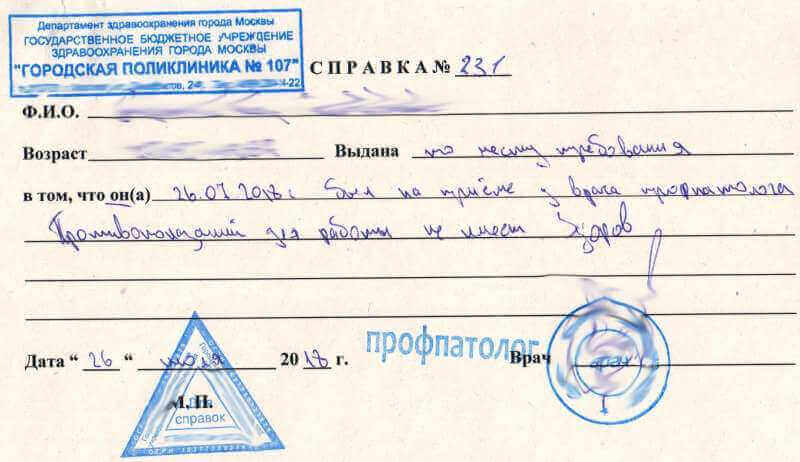 Департамент здравоохранения города Москвы
ГОСУДАРСТВЕННОЕ БЮДЖЕТНОЕ УЧРЕЖДЕНИЕ
ЗДРАВООХРАНЕНИЯ ГОРОДА МОСКВЫ
"ГОРОДСКАЯ ПОЛИКЛИНИКА № 107"
СПРАВКА № 231
Ф.И.О.
Возраст Выдана по месту требования
в том, что он(а) 26.07.2018г был на приёме у врача профпатолога
Противопоказаний для работы не имеет Здоров
профпатолог
Дата “ 26 “ июля 2018 г. Врач
М.П.
справок
врач